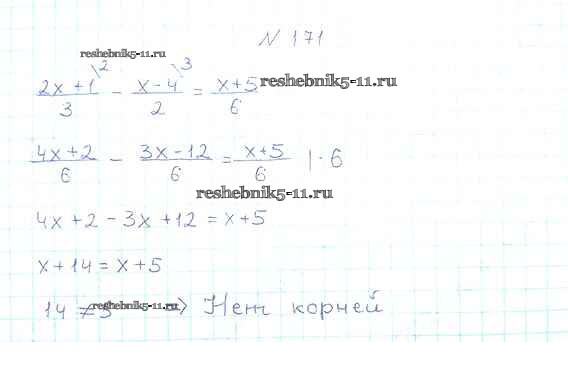 N 171
reshebnik5-11.ru
(2x+1)/3 \2 - (x-4)/2 \3 = (x+5)/6 reshebnik5-11.ru
(4x+2)/6 - (3x-12)/6 = (x+5)/6 | · 6
reshebnik5-11.ru
4x+2-3x+12=x+5
x+14=x+5
14 ≠ 5 reshebnik5-11.ru => Нет корней